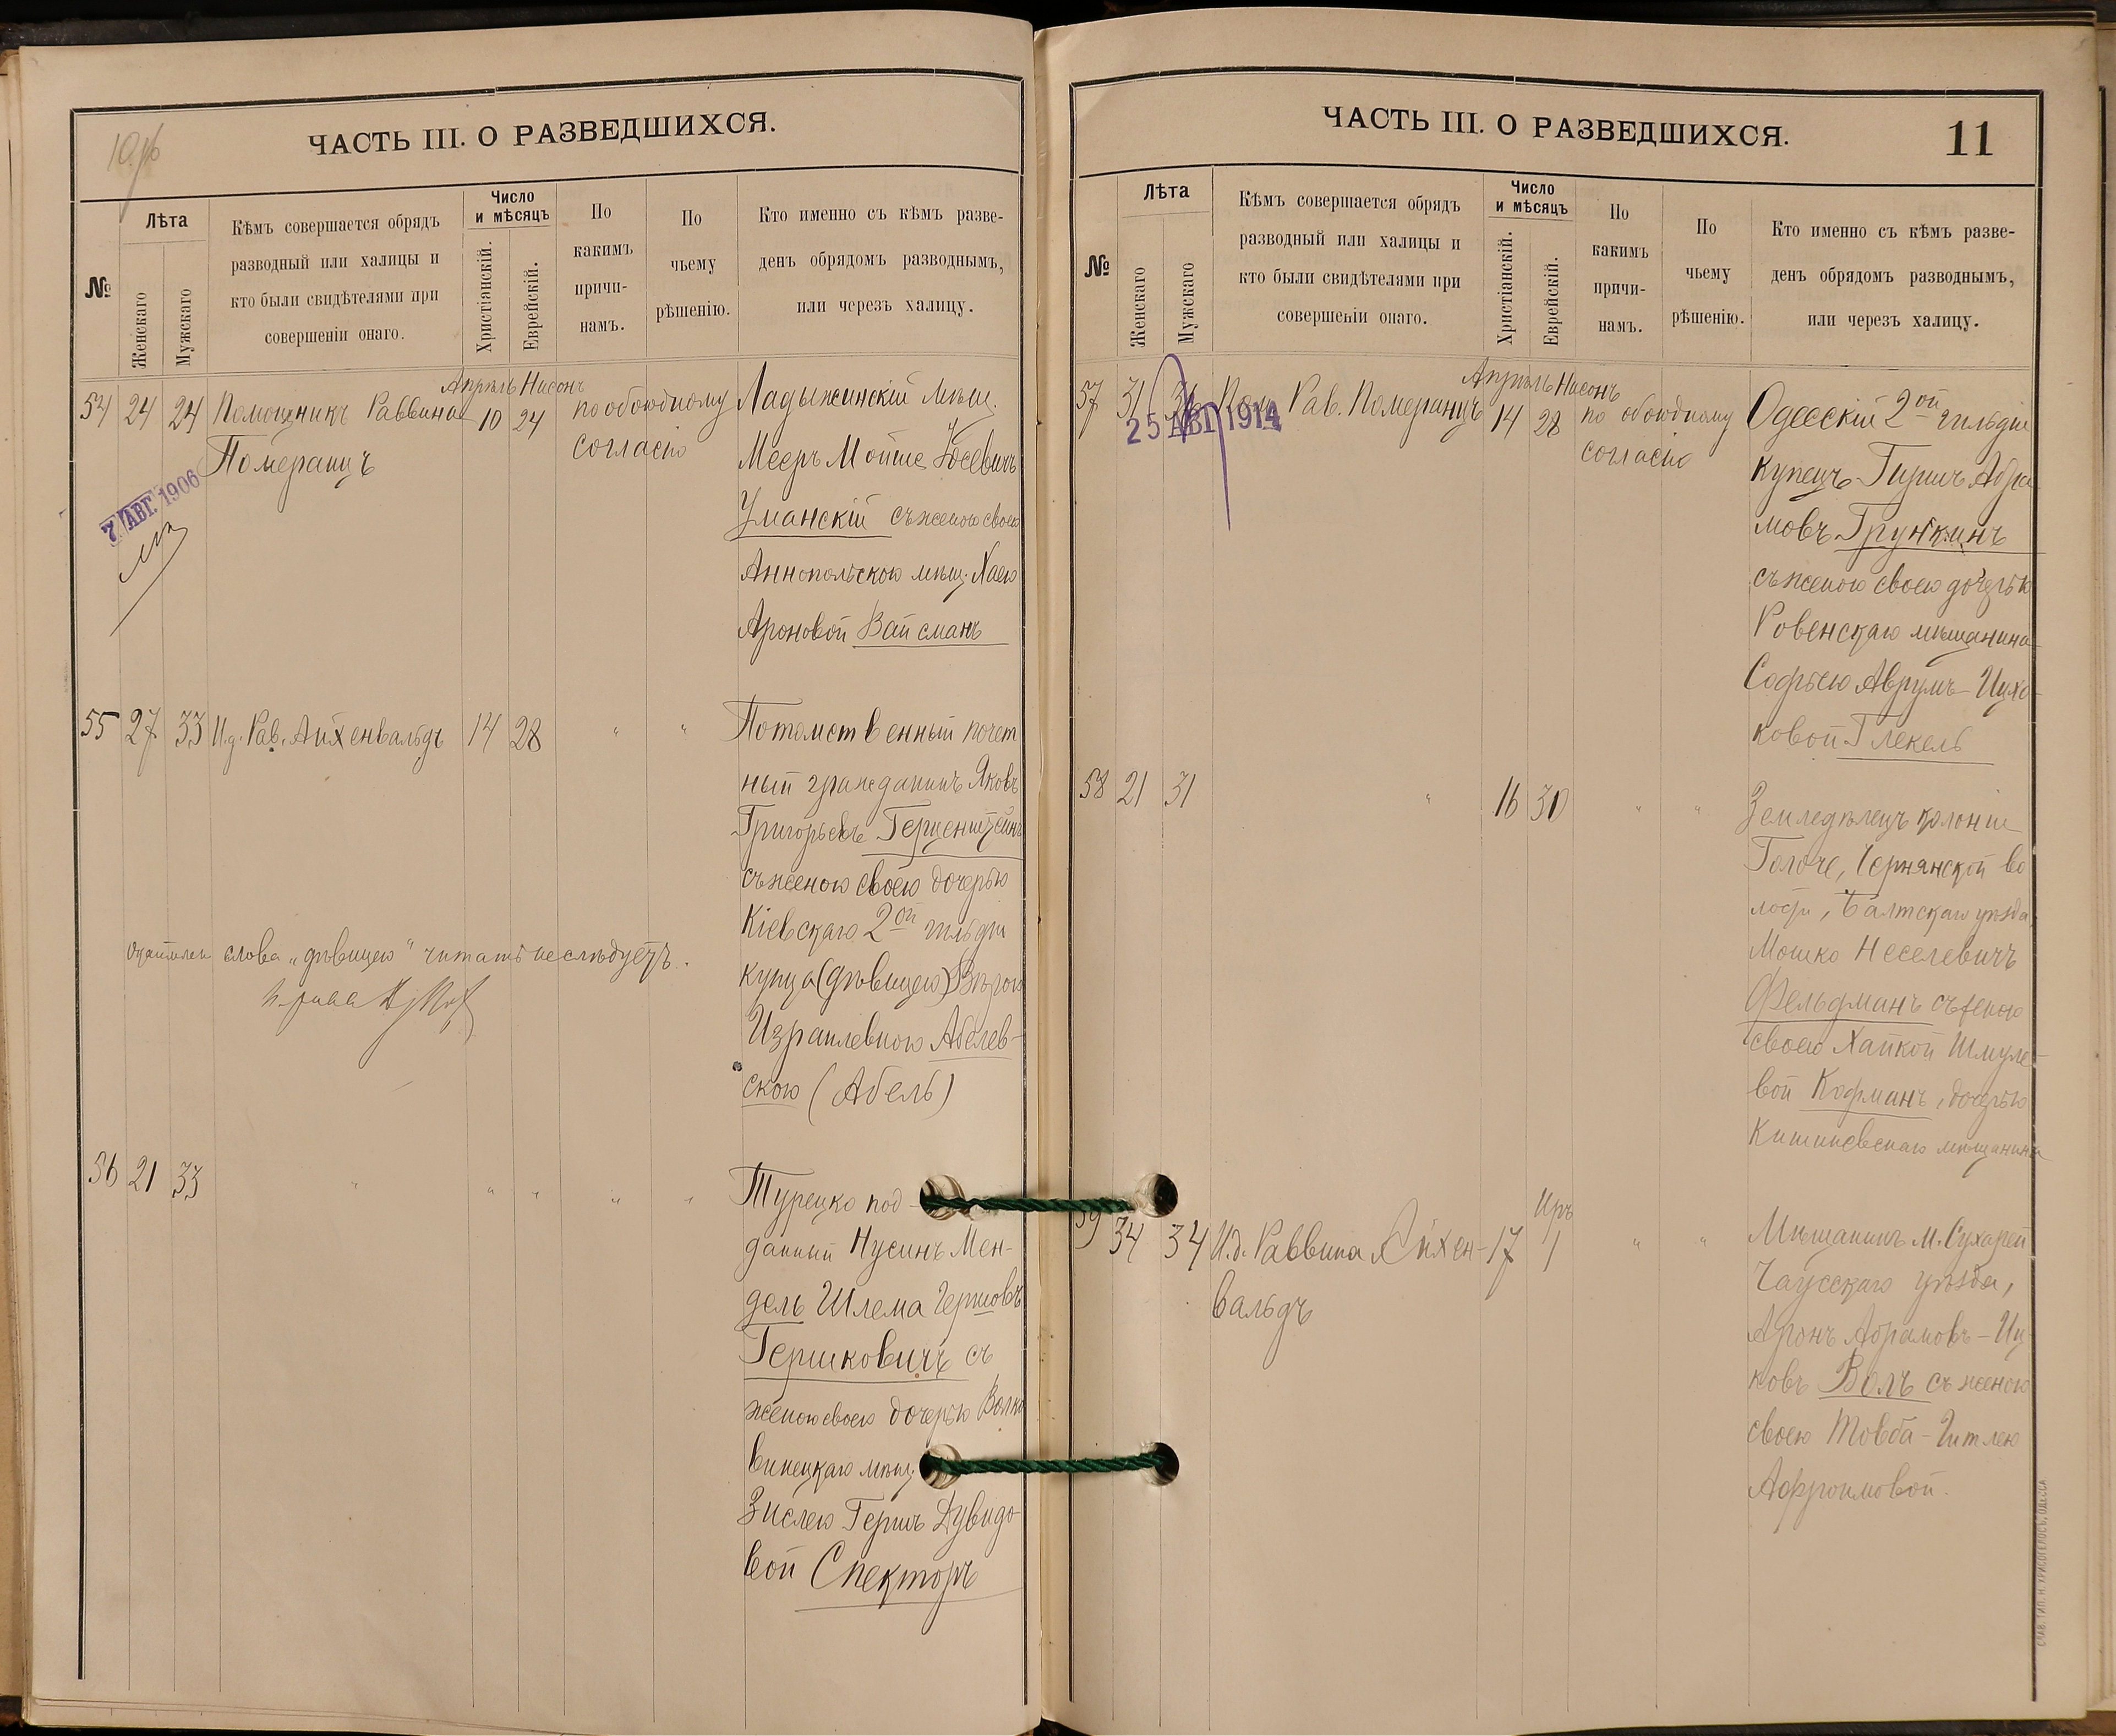 ЧАСТЬ III. О РАЗВЕДШИХСЯ.
№
Лѣта
Женскаго
Мужскаго
Кѣмъ совершается обрядъ
разводный или халицы и
кто были свидѣтелями при
совершеніи онаго.
Число
и мѣсяцъ
Христіанскій.
Еврейскій.
По
какимъ
причи-
намъ.
По
чьему
рѣшенію.
Кто именно съ кѣмъ разве-
денъ обрядомъ разводнымъ,
или черезъ халицу.
Апрѣль Нисонъ
54 24 24 Помощникъ Раввина 10 24 по обоюдному
Померанцъ
согласію
7 АВГ. 1906
Ладыжинскій мѣщ.
Мееръ Мойше Іосевичъ
Уманскій съ женою своею
Аннопольскою мѣщ. Хаею
Ароновой Вайсманъ
55 27 33 И.д. Рав. Айхенвальдъ 14 28 " "
Потомственный почет
ный гражданинъ Яковъ
Григорьевъ Герценштейнъ
съ женою своею дочерью
Кіевскаго 2ой гильдіи
купца (дѣвицею) Вѣрою
Израилевною Абелев-
скою (Абель)
слова „дѣвицею" читать не слѣдуетъ.
56 21 33 " " " " "
Турецко под-
данный Нусинъ Мен-
дель Шлема Гершовъ
Гершковичъ съ
женою своею дочерью Волко
винецкаго мѣщ.
Зислею Гершъ Дувидо-
вой Спекторъ
ЧАСТЬ III. О РАЗВЕДШИХСЯ.
11
№
Лѣта
Женскаго
Мужскаго
Кѣмъ совершается обрядъ
разводный или халицы и
кто были свидѣтелями при
совершеніи онаго.
Число
и мѣсяцъ
Христіанскій.
Еврейскій.
По
какимъ
причи-
намъ.
По
чьему
рѣшенію.
Кто именно съ кѣмъ разве-
денъ обрядомъ разводнымъ,
или черезъ халицу.
Апрѣль Нисонъ
57 31 36 Пом. Рав. Померанцъ 14 28 по обоюдному
согласію
25 АВГ 1914
Одесскій 2ой гильдіи
купецъ Гиршъ Абра
мовъ Грункинъ
съ женою своею дочерью
Ровенскаго мѣщанина
Софьею Аврумъ-Ицхо-
ковой Глекель
58 21 31 " 16 30 " "
Земледѣлецъ колоніи
Голоче, Чернянской во
лости, Балтскаго уѣзда
Мошко Неселевичъ
Фельдманъ съ женою
своею Хайкой Шмуле-
вой Кофманъ, дочерью
Кишиневскаго мѣщанина
Иръ
59 34 34 И.д. Раввина Айхен- 17 1 " "
вальдъ
Мѣщанинъ м. Сухарей
Чаусскаго уѣзда,
Аронъ Абрамовъ-Иц
ковъ Волъ съ женою
своею Товба-Гитлею
Афроимовой.